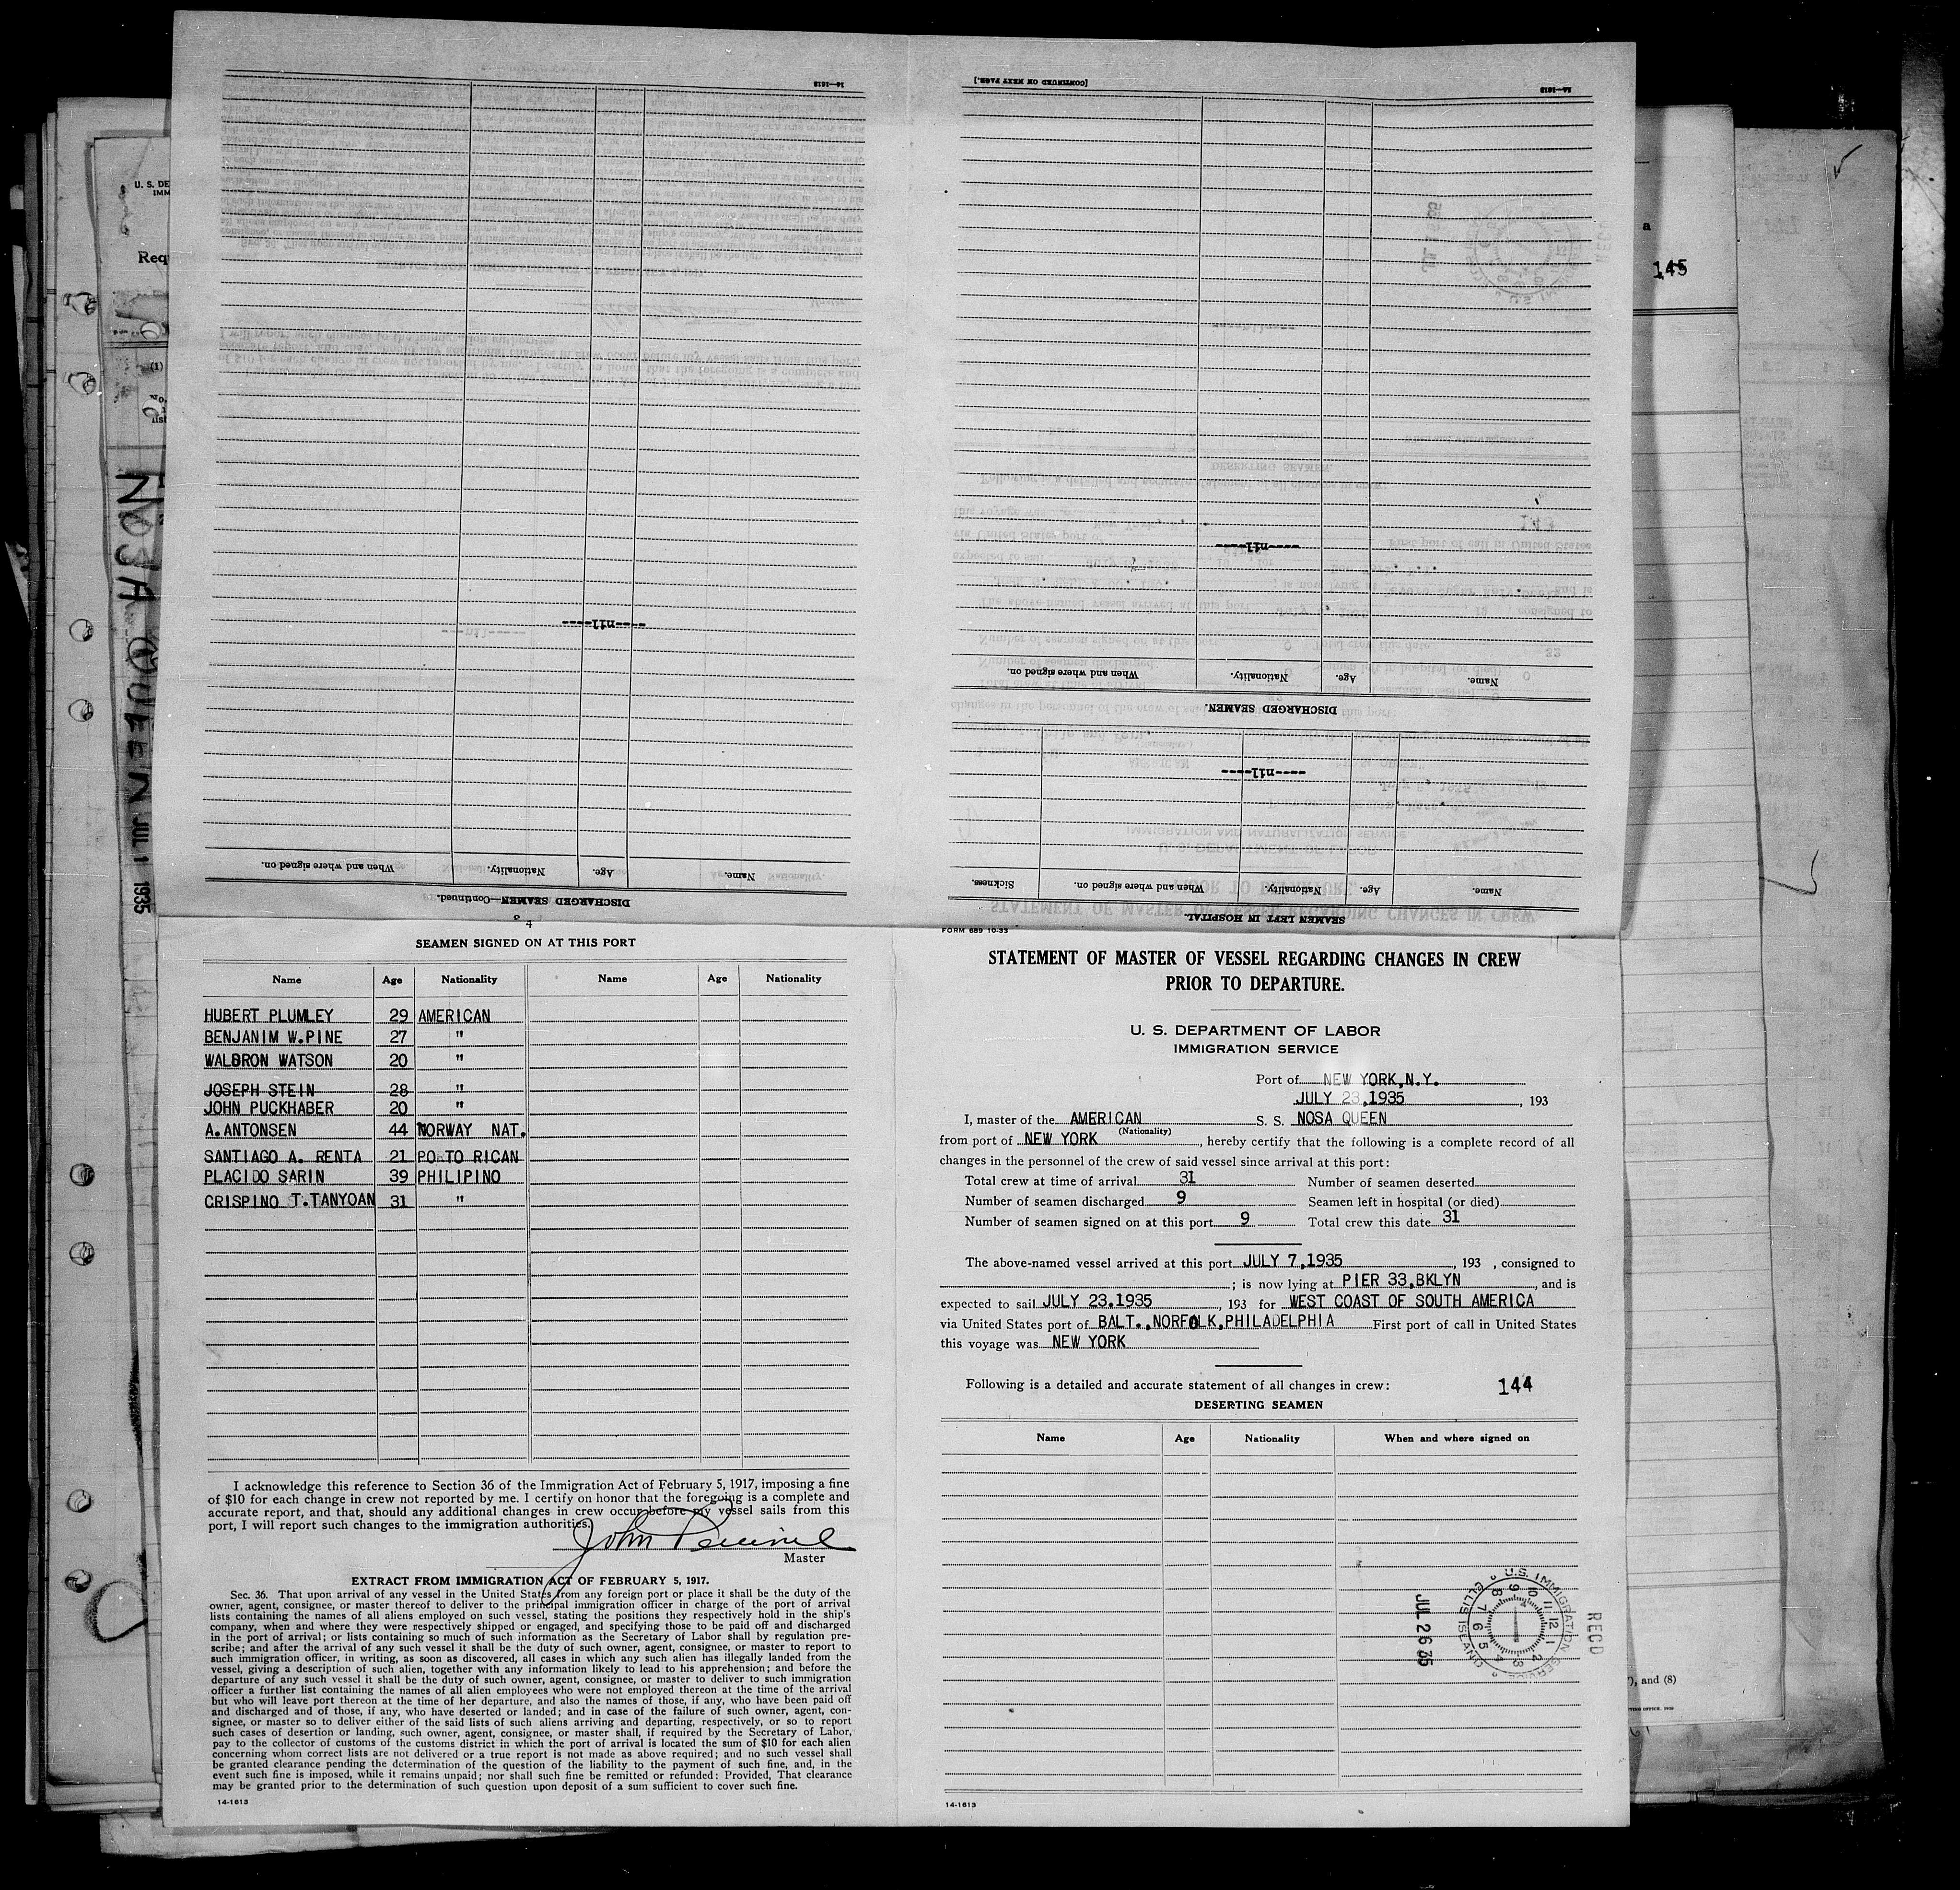 14-1613
[CONTINUED ON NEXT PAGE.]
14-1613
----nil----
----nil----
When and where signed on. Nationality. Age. Name.
DISCHARGED SEAMEN.
----nil----
When and where signed on. Nationality. Age. Name.
DISCHARGED SEAMEN—Continued.
Sickness. When and where signed on. Nationality. Age. Name.
SEAMEN LEFT IN HOSPITAL.
U. S. DE
IMM
Req
(1)
NOSA QUEEN JUL 1 1935
a
145
), and (8)
4
SEAMEN SIGNED ON AT THIS PORT
Name Age Nationality Name Age Nationality
HUBERT PLUMLEY 29 AMERICAN
BENJANIM W.PINE 27 "
WALDRON WATSON 20 "
JOSEPH STEIN 28 "
JOHN PUCKHABER 20 "
A.ANTONSEN 44 NORWAY NAT.
SANTIAGO A. RENTA 21 PORTO RICAN
PLACIDO SARIN 39 PHILIPINO
CRISPINO T.TANYOAN 31 "
I acknowledge this reference to Section 36 of the Immigration Act of February 5, 1917, imposing a fine
of $10 for each change in crew not reported by me. I certify on honor that the foregoing is a complete and
accurate report, and that, should any additional changes in crew occur before my vessel sails from this
port, I will report such changes to the immigration authorities.
John
Master
EXTRACT FROM IMMIGRATION ACT OF FEBRUARY 5, 1917.
Sec. 36. That upon arrival of any vessel in the United States from any foreign port or place it shall be the duty of the
owner, agent, consignee, or master thereof to deliver to the principal immigration officer in charge of the port of arrival
lists containing the names of all aliens employed on such vessel, stating the positions they respectively hold in the ship's
company, when and where they were respectively shipped or engaged, and specifying those to be paid off and discharged
in the port of arrival; or lists containing so much of such information as the Secretary of Labor shall by regulation pre-
scribe; and after the arrival of any such vessel it shall be the duty of such owner, agent, consignee, or master to report to
such immigration officer, in writing, as soon as discovered, all cases in which any such alien has illegally landed from the
vessel, giving a description of such alien, together with any information likely to lead to his apprehension; and before the
departure of any such vessel it shall be the duty of such owner, agent, consignee, or master to deliver to such immigration
officer a further list containing the names of all alien employees who were not employed thereon at the time of the arrival
but who will leave port thereon at the time of her departure, and also the names of those, if any, who have been paid off
and discharged and of those, if any, who have deserted or landed; and in case of the failure of such owner, agent, con-
signee, or master so to deliver either of the said lists of such aliens arriving and departing, respectively, or so to report
such cases of desertion or landing, such owner, agent, consignee, or master shall, if required by the Secretary of Labor,
pay to the collector of customs of the customs district in which the port of arrival is located the sum of $10 for each alien
concerning whom correct lists are not delivered or a true report is not made as above required; and no such vessel shall
be granted clearance pending the determination of the question of the liability to the payment of such fine, and, in the
event such fine is imposed, while it remains unpaid; nor shall such fine be remitted or refunded: Provided, That clearance
may be granted prior to the determination of such question upon deposit of a sum sufficient to cover such fine.
14-1613
FORM 689 10-33
STATEMENT OF MASTER OF VESSEL REGARDING CHANGES IN CREW
PRIOR TO DEPARTURE.
U. S. DEPARTMENT OF LABOR
IMMIGRATION SERVICE
Port of NEW YORK,N.Y.
JULY 23,1935, 193
I, master of the AMERICAN S. S. NOSA QUEEN
(Nationality)
from port of NEW YORK, hereby certify that the following is a complete record of all
changes in the personnel of the crew of said vessel since arrival at this port:
Total crew at time of arrival 31 Number of seamen deserted
Number of seamen discharged 9 Seamen left in hospital (or died)
Number of seamen signed on at this port 9 Total crew this date 31
The above-named vessel arrived at this port JULY 7,1935, 193 , consigned to
; is now lying at PIER 33,BKLYN, and is
expected to sail JULY 23.1935, 193 for WEST COAST OF SOUTH AMERICA
via United States port of BALT.,NORFOLK,PHILADELPHIA First port of call in United States
this voyage was NEW YORK
Following is a detailed and accurate statement of all changes in crew: 144
DESERTING SEAMEN
Name Age Nationality When and where signed on
RECD
U.S. IMMIGRATION SERVICE ELLIS ISLAND
12 1 2 3 4 5 6 7 8 9 10 11
JUL 26 35
14-1613